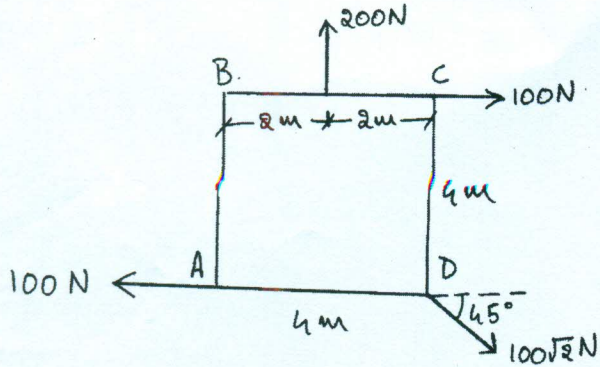 200N
B. C
100N
2m 2m
4m
A D
100 N
45°
4m
100√2N